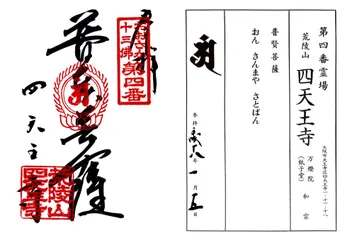 第四番霊場
荒陵山 四天王寺
大阪市天王寺区四天王寺一-十一-十八
万燈院 和宗
(紙子堂)
普賢菩薩
おん さんまや さとばん
奉拝 平成八年 一月 五日
奉拝
十三佛
第四番
普賢菩薩
四天王寺
荒陵山
四天王寺